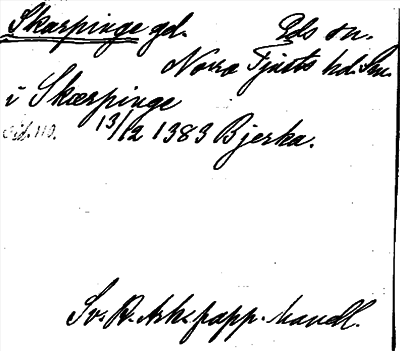 Skarpinge gd. Eds sn.
Norra Tjusts hd. Sm.
i Skærpinge
Sid. 110. 13/12 1383 Bjerka.
Sv. R. Ark. papp. handl.